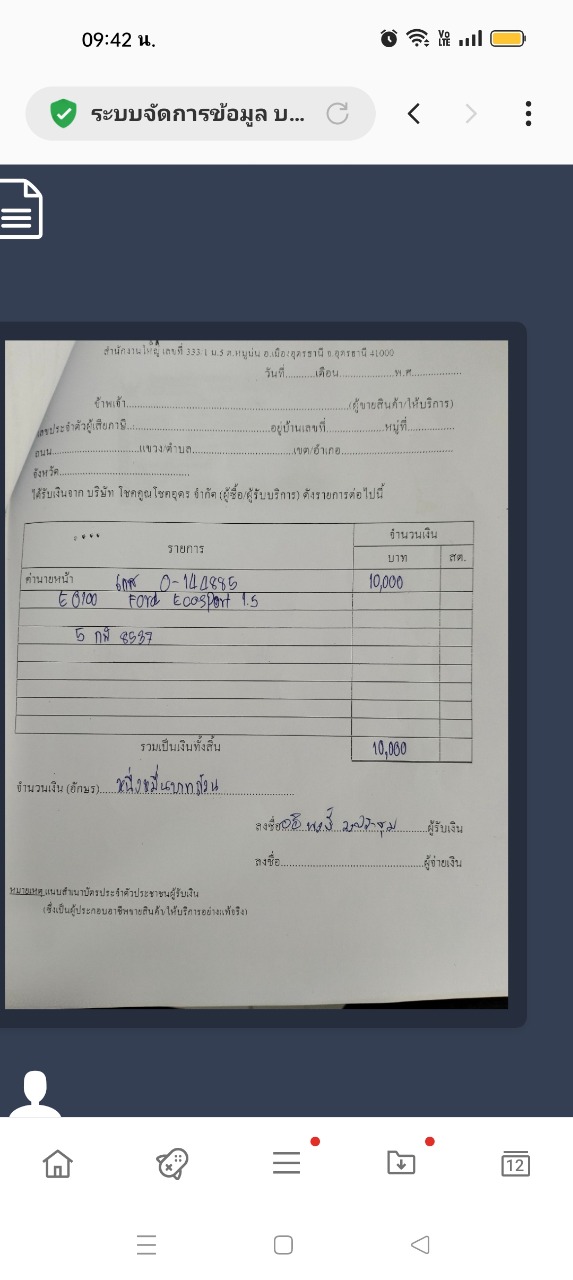 09:42 น.
Vo LTE
ระบบจัดการข้อมูล บ...
สำนักงานใหญ่ เลขที่ 333/1 ม.5 ต.หมูม่น อ.เมืองอุดรธานี จ.อุดรธานี 41000
วันที่..........เดือน....................พ.ศ..................
ข้าพเจ้า..........................................................(ผู้ขายสินค้า/ให้บริการ)
เลขประจำตัวผู้เสียภาษี...................................อยู่บ้านเลขที่...............หมู่ที่............
ถนน......................แขวง/ตำบล..........................เขต/อำเภอ............................
จังหวัด................................
ได้รับเงินจาก บริษัท โชคคูณโชคอุดร จำกัด (ผู้ซื้อ/ผู้รับบริการ) ดังรายการต่อไปนี้
รายการ จำนวนเงิน
บาท สต.
ค่านายหน้า 10,000
Ford Ecosport 1.5
5 กพ 8537
รวมเป็นเงินทั้งสิ้น 10,000
จำนวนเงิน (อักษร) หนึ่งหมื่นบาทถ้วน
ลงชื่อ ผู้รับเงิน
ลงชื่อ........................................ผู้จ่ายเงิน
หมายเหตุ แนบสำเนาบัตรประจำตัวประชาชนผู้รับเงิน
(ซึ่งเป็นผู้ประกอบอาชีพขายสินค้า/ให้บริการอย่างแท้จริง)
12